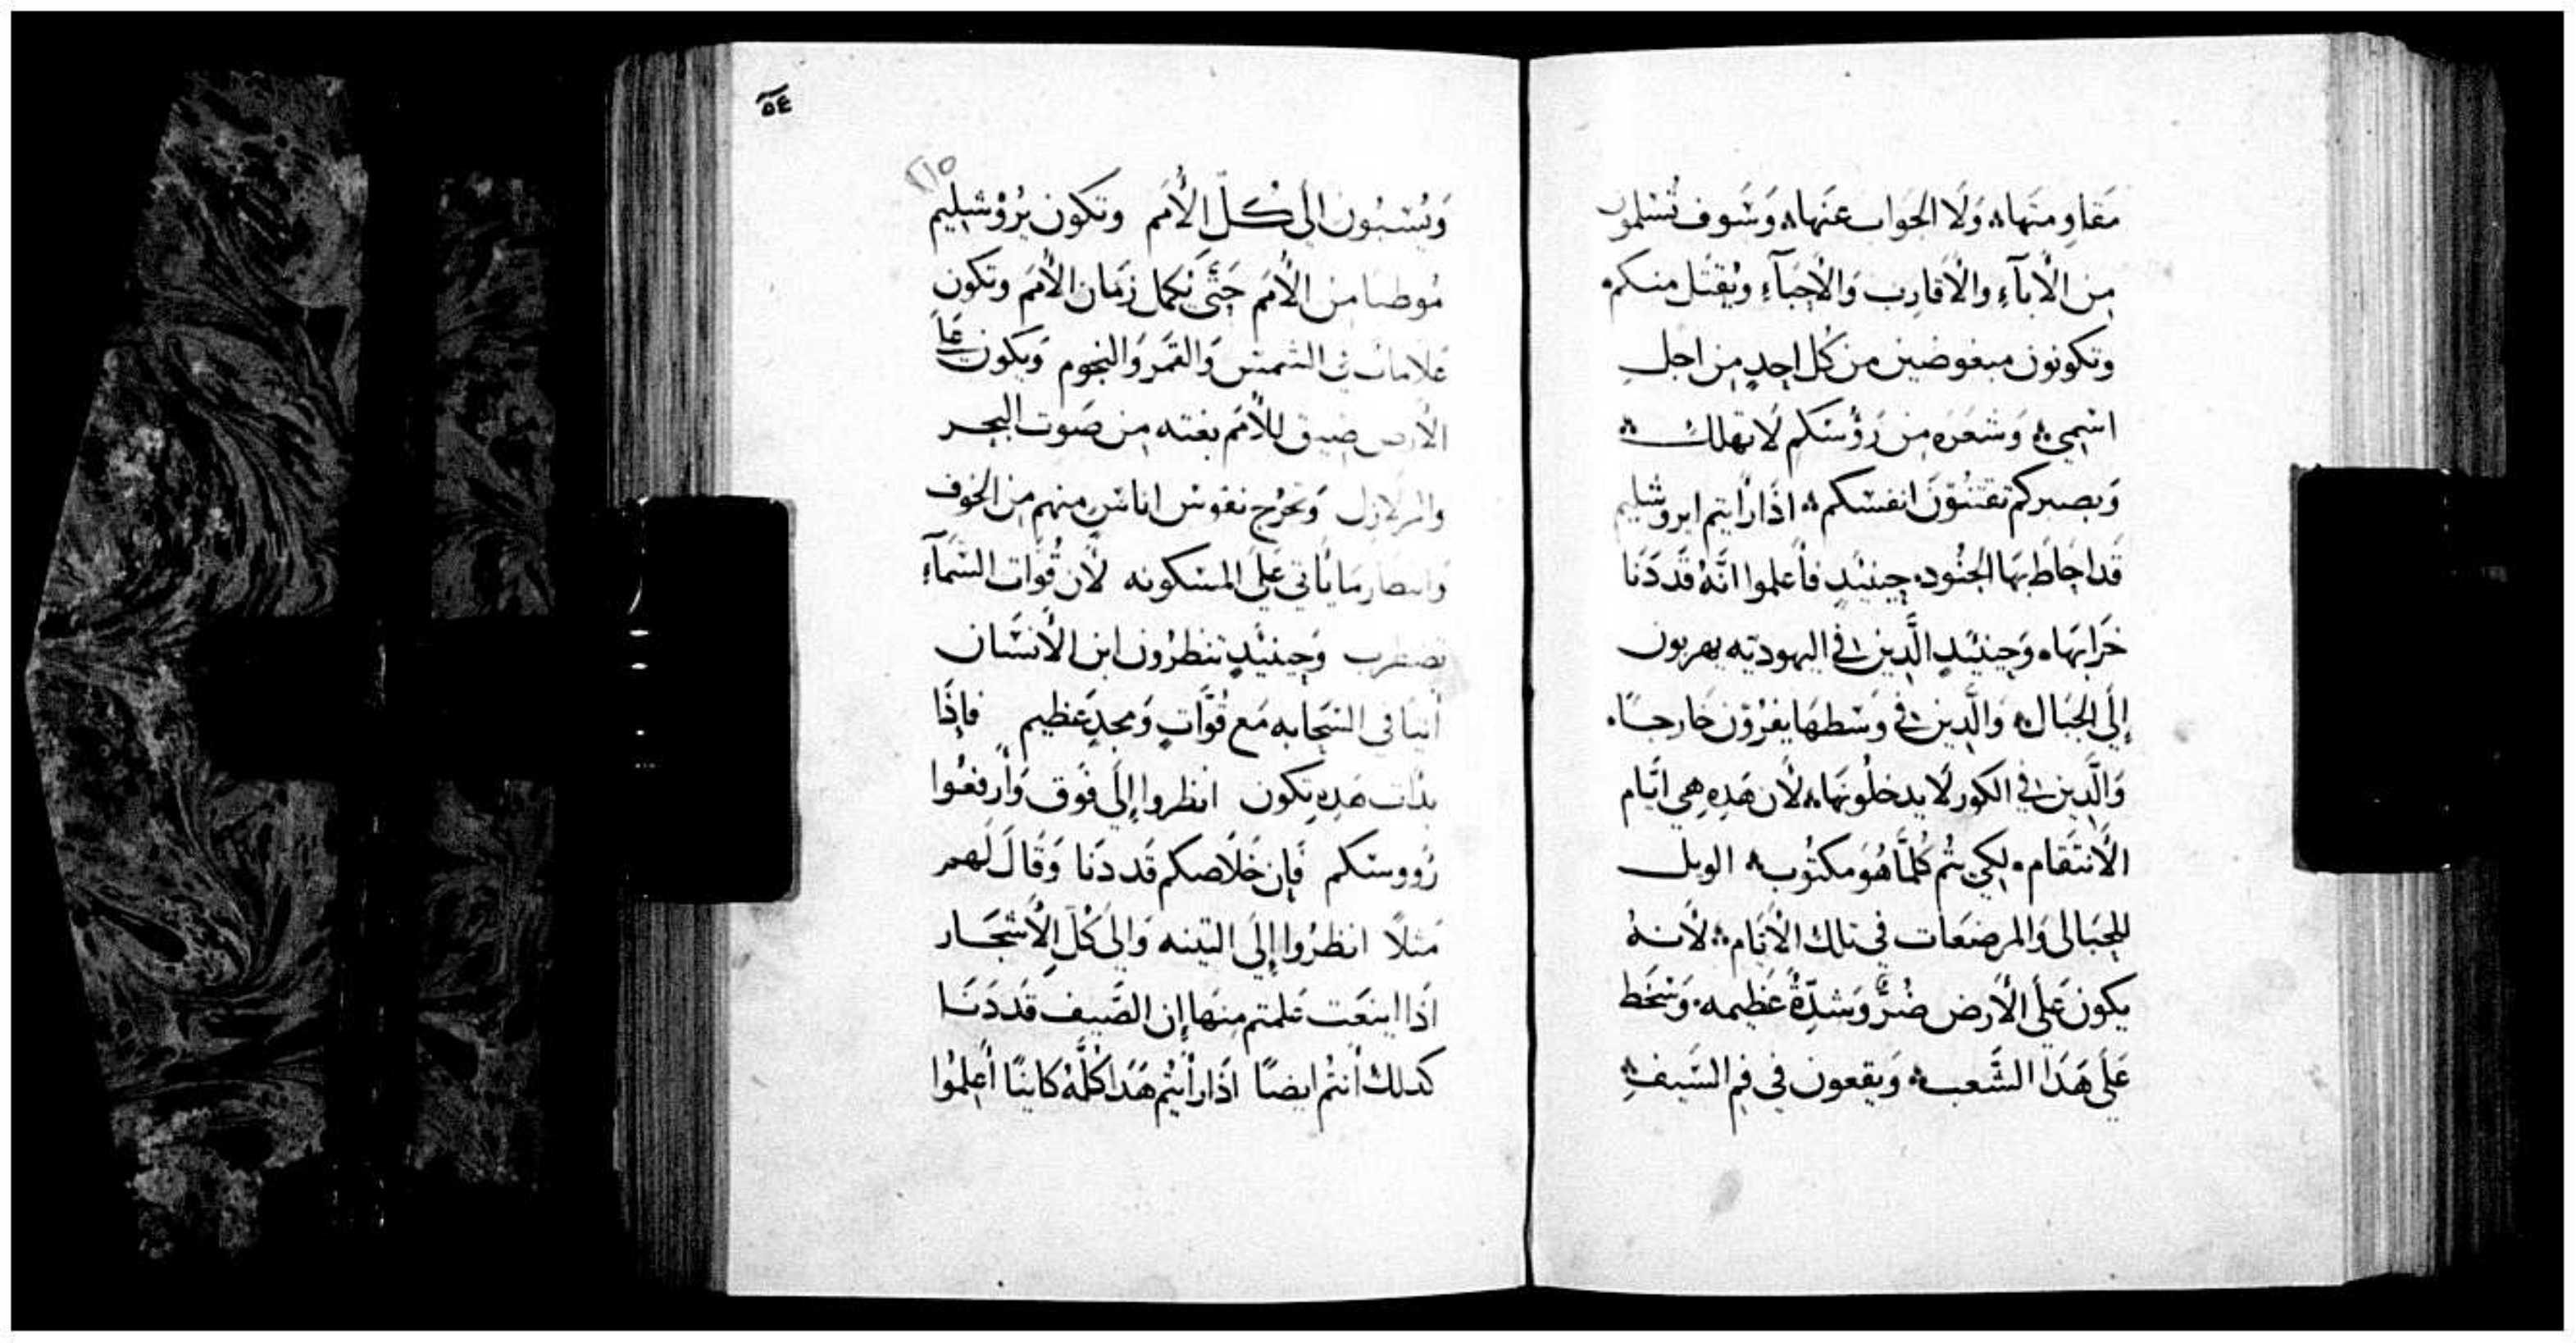 مَقاومتها؞ وَلَا الجَوابَ عَنها؞ وَسَوف تُسْلمون
مِن الْابآءِ والْاقارِب وَالْاحِبَآءِ ويُقتَل منكم؞
وتكونون مبغوضين من كُل احدٍ مِن اجلِ
اسْمِي؞ وَشَعَرَه مِن رَؤُسَكم لَا تهلك؞
وَبصبركم تقتنُوْنَ انفسَكم؞ اذَا رَايتم ايروشليم
قَد احَاطَ بهَا الجنُود؞ حِينَيدٍ فاَعلموا انَّهُ قَد دَنَا
خَرابهَا؞ وَحِينَيدٍ الَّدِين في اليهوديَه يهربون
إلَى الجبَال؞ وَالَّدِين في وَسَطهَا يفرُوْن خَارجًا؞
وَالَّدِين في الكور لَا يدخلُونَهَا؞ لَان هَدِه هِي ايَّام
الْانتَقام؞ لِكي يتُم كُلمَّا هُوَ مكتُوب؞ الويل
للحبَالى وَالمرضعَات في تلك الْايَّام؞ لَانهُ
يكون عَلَى الْارض ضُرٌّ وَشدّةٌ عَظِيمه؞ وَسَخَط
عَلَى هَدَا الشَّعب؞ وَيقعون في فمِ السَيفِ؞
٥٤
٢١٥
وَيُسْبَون الى كُلّ الْأمَم وتكون يرُوْشليم
مُوطيا من الْأمَم حَتَّى تكمل زمَان الْأمَم وتكون
عَلَامات في الشمسْ وَالقمَر وَالنجوم وَيكون عَلَى
الْارض ضيق للْأمَم بغته مِن صَوت البحر
والزلازل وَتخرُج نفوسْ اناسٍ منهم مِن الخوف
وَانتظار مَا يَاتي عَلَى المسْكونه لَان قُوّات السَّمآءِ
تضطرب وَحِينَيدٍ تنظرُون ابن الْانسَان
أتيا فى السَحابه مَع قوَّاتٍ وَمجدٍ عَظيم فاِذَا
بدَات هَدِه تكون انظروا إلَى فَوق وَأرفعُوا
رُووسَكم فَإن خَلَاصكم قَد دَنَا وَقَالَ لَهم
مَثلًا انظرُوا إلَى التينه وَالى كُلّ الْأشجَار
اذَا اينعَت عَلمتم مِنهَا إن الصَيف قَد دَنَا
كدلك أنتُم ايضًا اذَا رأيتُم هَدَا كلَّهُ كاينًا أعلمُوا